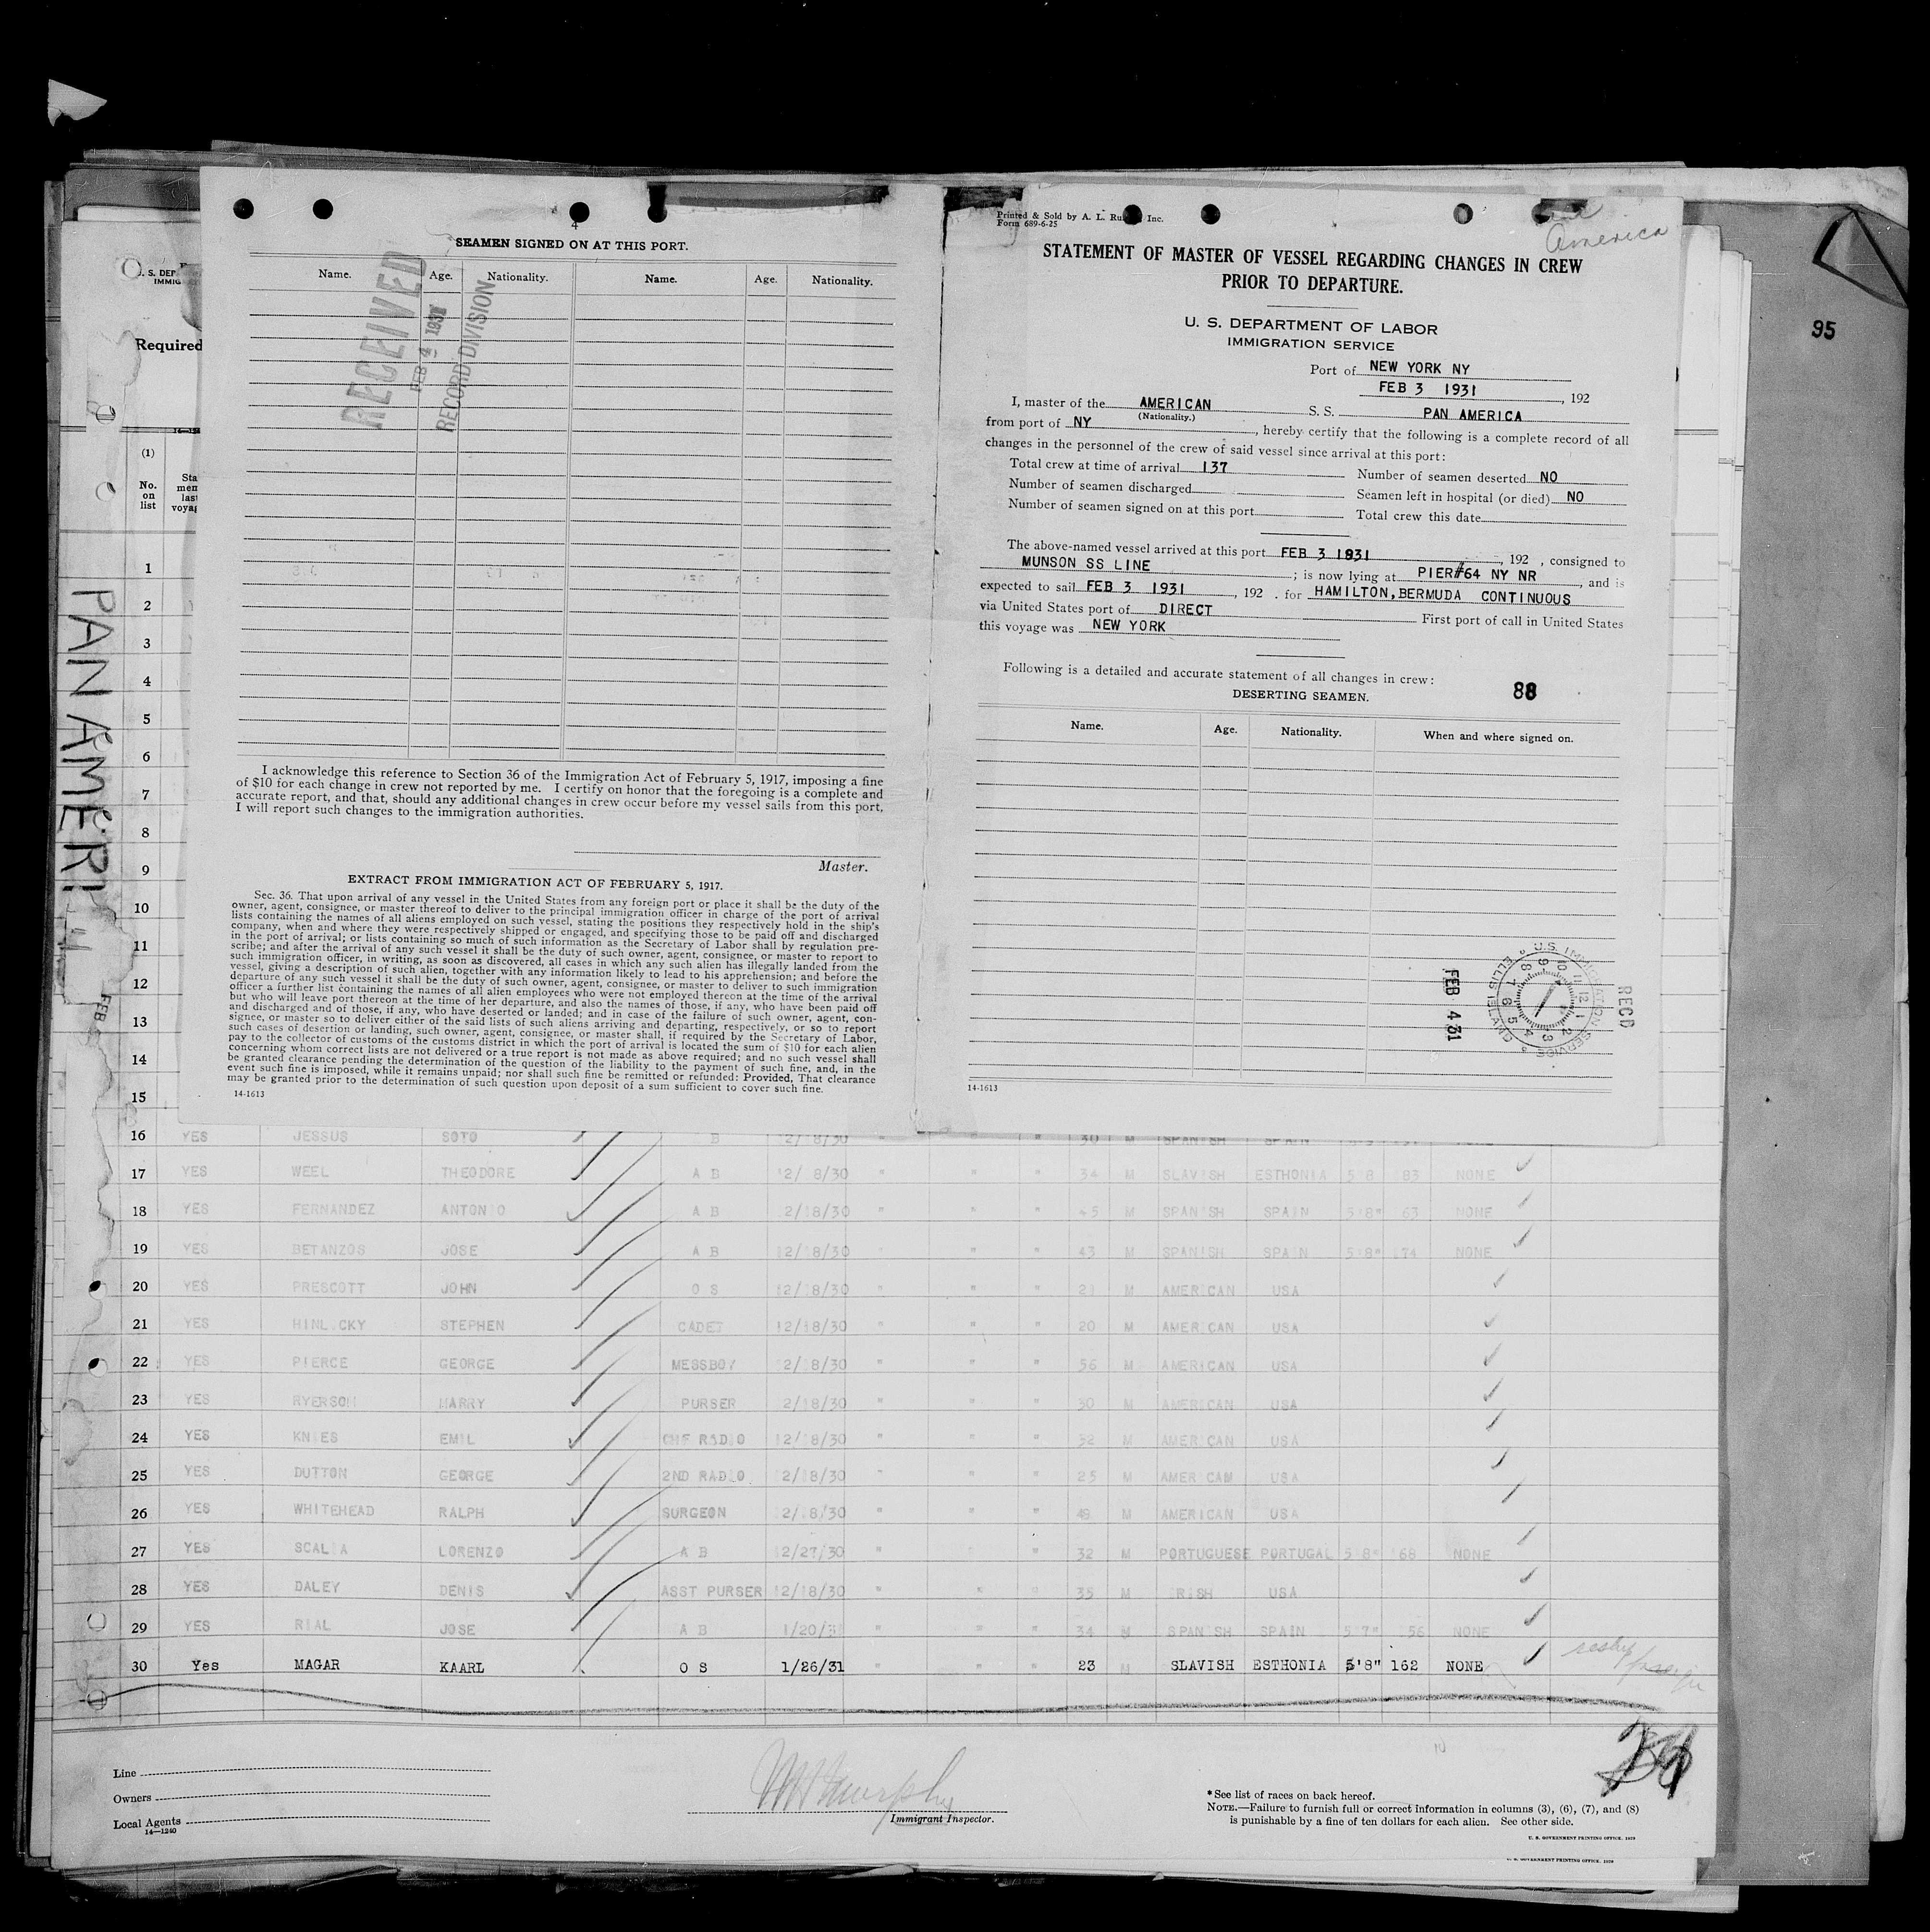 4
SEAMEN SIGNED ON AT THIS PORT.
Name. Age. Nationality. Name. Age. Nationality.
RECEIVED
FEB 4 1931
RECORD DIVISION
I acknowledge this reference to Section 36 of the Immigration Act of February 5, 1917, imposing a fine
of $10 for each change in crew not reported by me. I certify on honor that the foregoing is a complete and
accurate report, and that, should any additional changes in crew occur before my vessel sails from this port,
I will report such changes to the immigration authorities.
Master.
EXTRACT FROM IMMIGRATION ACT OF FEBRUARY 5, 1917.
Sec. 36. That upon arrival of any vessel in the United States from any foreign port or place it shall be the duty of the
owner, agent, consignee, or master thereof to deliver to the principal immigration officer in charge of the port of arrival
lists containing the names of all aliens employed on such vessel, stating the positions they respectively hold in the ship's
company, when and where they were respectively shipped or engaged, and specifying those to be paid off and discharged
in the port of arrival; or lists containing so much of such information as the Secretary of Labor shall by regulation pre-
scribe; and after the arrival of any such vessel it shall be the duty of such owner, agent, consignee, or master to report to
such immigration officer, in writing, as soon as discovered, all cases in which any such alien has illegally landed from the
vessel, giving a description of such alien, together with any information likely to lead to his apprehension; and before the
departure of any such vessel it shall be the duty of such owner, agent, consignee, or master to deliver to such immigration
officer a further list containing the names of all alien employees who were not employed thereon at the time of the arrival
but who will leave port thereon at the time of her departure, and also the names of those, if any, who have been paid off
and discharged and of those, if any, who have deserted or landed; and in case of the failure of such owner, agent, con-
signee, or master so to deliver either of the said lists of such aliens arriving and departing, respectively, or so to report
such cases of desertion or landing, such owner, agent, consignee, or master shall, if required by the Secretary of Labor,
pay to the collector of customs of the customs district in which the port of arrival is located the sum of $10 for each alien
concerning whom correct lists are not delivered or a true report is not made as above required; and no such vessel shall
be granted clearance pending the determination of the question of the liability to the payment of such fine, and, in the
event such fine is imposed, while it remains unpaid; nor shall such fine be remitted or refunded: Provided, That clearance
may be granted prior to the determination of such question upon deposit of a sum sufficient to cover such fine.
14-1613
Printed & Sold by A. L. Inc.
Form 689-6-25
America
STATEMENT OF MASTER OF VESSEL REGARDING CHANGES IN CREW
PRIOR TO DEPARTURE.
U. S. DEPARTMENT OF LABOR
IMMIGRATION SERVICE
Port of NEW YORK NY
FEB 3 1931, 192
I, master of the AMERICAN S. S. PAN AMERICA
(Nationality.)
from port of NY, hereby certify that the following is a complete record of all
changes in the personnel of the crew of said vessel since arrival at this port:
Total crew at time of arrival 137 Number of seamen deserted NO
Number of seamen discharged Seamen left in hospital (or died) NO
Number of seamen signed on at this port Total crew this date
The above-named vessel arrived at this port FEB 3 1931, 192 , consigned to
MUNSON SS LINE; is now lying at PIER#64 NY NR, and is
expected to sail FEB 3 1931, 192 . for HAMILTON,BERMUDA CONTINUOUS
via United States port of DIRECT First port of call in United States
this voyage was NEW YORK
Following is a detailed and accurate statement of all changes in crew:
88
DESERTING SEAMEN.
Name. Age. Nationality. When and where signed on.
RECD
U.S. IMMIGRATION SERVICE ELLIS ISLAND
FEB 4 31
14-1613
95
PAN AMERI
FEB
U. S. DEP
IMMIG
Required
(1)
No.
on
list
1
2
3
4
5
6
7
8
9
10
11
12
13
14
15
16 YES JESSUS SOTO B 30 M SPANISH SPAIN
17 YES WEEL THEODORE A B 12/18/30 " " " 34 M SLAVISH ESTHONIA 5'8 183 NONE
18 YES FERNANDEZ ANTONIO A B 12/18/30 " " " 45 M SPANISH SPAIN 5'8" 163 NONE
19 YES BETANZOS JOSE A B 12/18/30 " " " 43 M SPANISH SPAIN 5'8" 174 NONE
20 YES PRESCOTT JOHN O S 12/18/30 " " " 21 M AMERICAN USA
21 YES HINLICKY STEPHEN CADET 12/18/30 " " " 20 M AMERICAN USA
22 YES PIERCE GEORGE MESSBOY 12/18/30 " " " 56 M AMERICAN USA
23 YES RYERSON HARRY PURSER 12/18/30 " " " 30 M AMERICAN USA
24 YES KNIES EMIL CHF RADIO 12/18/30 " " " 32 M AMERICAN USA
25 YES DUTTON GEORGE 2ND RADIO 12/18/30 " " " 25 M AMERICAN USA
26 YES WHITEHEAD RALPH SURGEON 12/18/30 " " " 49 M AMERICAN USA
27 YES SCALIA LORENZO A B 12/27/30 " " " 32 M PORTUGUESE PORTUGAL 5'8" 168 NONE
28 YES DALEY DENIS ASST PURSER 12/18/30 " " " 35 M IRISH USA
29 YES RIAL JOSE A B 1/20/31 " " " 34 M SPANISH SPAIN 5'7" 156 NONE
30 Yes MAGAR KAARL O S 1/26/31 " " " 23 M SLAVISH ESTHONIA 5'8" 162 NONE
Line
Owners
Local Agents
14-1240
Murphy
Immigrant Inspector.
*See list of races on back hereof.
NOTE.—Failure to furnish full or correct information in columns (3), (6), (7), and (8)
is punishable by a fine of ten dollars for each alien. See other side.
U. S. GOVERNMENT PRINTING OFFICE. 1929